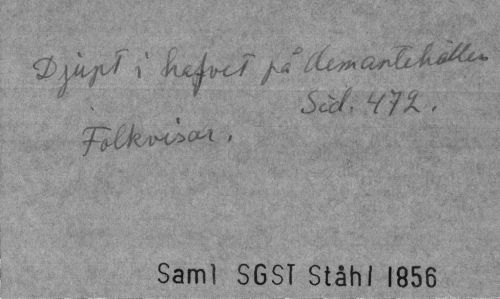 Djupt i hafvet på demantehällen
Sid. 472.
Folkvisor.
Saml SGST Ståhl 1856